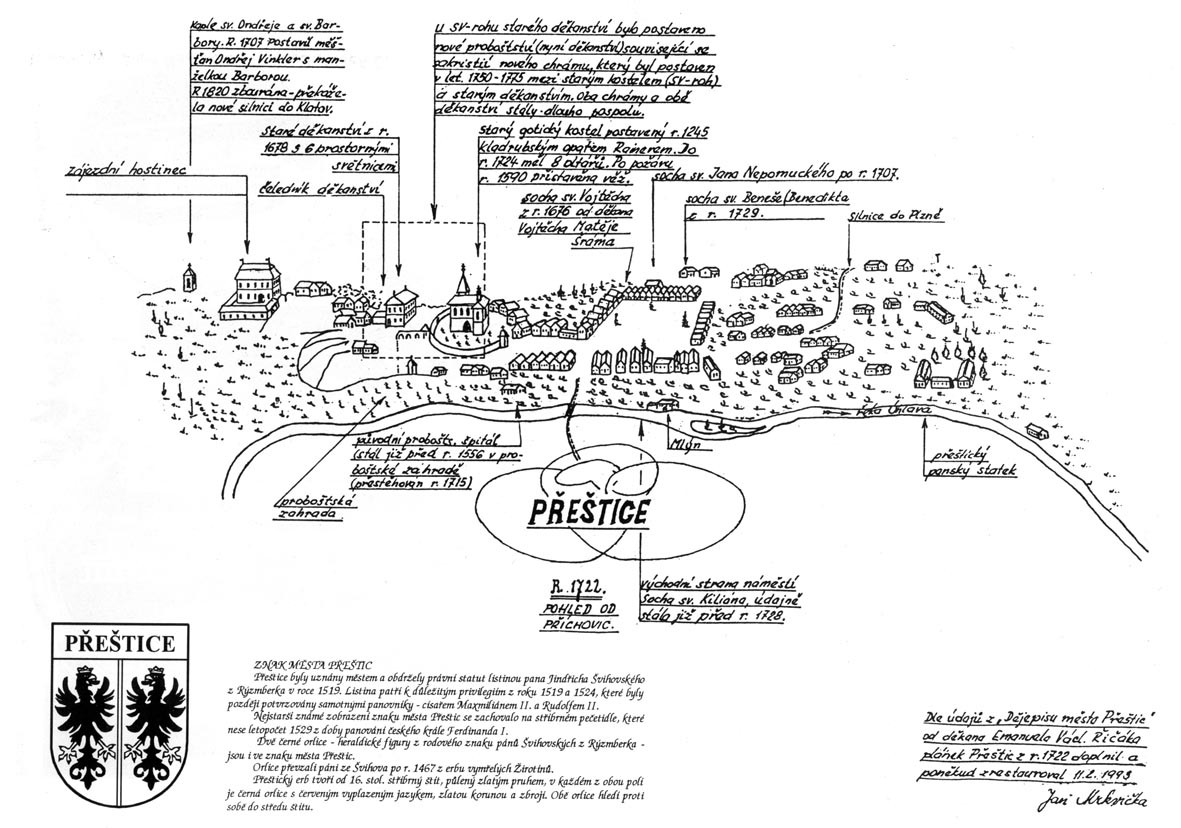 Kaple sv. Ondřeje a sv. Bar-
bory. R. 1707 postavil měš-
ťan Ondřej Vinkler s man-
želkou Barborou.
R 1820 zbourána-překáže-
la nové silnici do Klatov.
U SV-rohu starého děkanství bylo postaveno
nové proboštství (nyní děkanství) související se
sakristií nového chrámu, který byl postaven
v let. 1750-1775 mezi starým kostelem (SV-roh)
a starým děkanstvím. Oba chrámy a obě
děkanství stály dlouho pospolu.
Staré děkanství z r.
1678 s 6 prostornými
světnicemi
starý gotický kostel postavený r. 1245
kladrubským opatem Rainerem. Do
r. 1724 měl 8 oltářů. Po požáru
r. 1590 přistavěna věž.
zájezdní hostinec
čeledník děkanství
socha sv. Vojtěcha
z r. 1676 od děkana
Vojtěcha Matěje
Šrama
socha sv. Jana Nepomuckého po r. 1707.
socha sv. Beneše/Benedikta
z r. 1729.
silnice do Plzně
řeka Úhlava
původní probošts. špitál
(stál již před r. 1556 v pro-
boštské zahradě
(přestěhován r. 1715)
Mlýn
přeštický
panský statek
proboštská
zahrada
PŘEŠTICE
R. 1722.
POHLED OD
PŘÍCHOVIC.
východní strana náměstí
Socha sv. Kiliána, údajně
stála již před r. 1728.
PŘEŠTICE
ZNAK MĚSTA PŘEŠTIC
Přeštice byly uznány městem a obdržely právní statut listinou pana Jindřicha Švihovského
z Rýzmberka v roce 1519. Listina patří k důležitým privilegiím z roku 1519 a 1524, které byly
později potvrzovány samotnými panovníky - císařem Maxmiliánem II. a Rudolfem II.
Nejstarší známé zobrazení znaku města Přeštic se zachovalo na stříbrném pečetidle, které
nese letopočet 1529 z doby panování českého krále Ferdinanda I.
Dvě černé orlice - heraldické figury z rodového znaku pánů Švihovských z Rýzmberka -
jsou i ve znaku města Přeštic.
Orlice převzali páni ze Švihova po r. 1467 z erbu vymřelých Žirotínů.
Přeštický erb tvoří od 16. stol. stříbrný štít, půlený zlatým pruhem, v každém z obou polí
je černá orlice s červeným vyplazeným jazykem, zlatou korunou a zbrojí. Obě orlice hledí proti
sobě do středu štítu.
Dle údajů z „Dějepisu města Přeštic"
od děkana Emanuela Václ. Řičáka
plánek Přeštic z r. 1722 doplnil a
poněkud zrestauroval 11.2. 1993
Jan Mrkvička